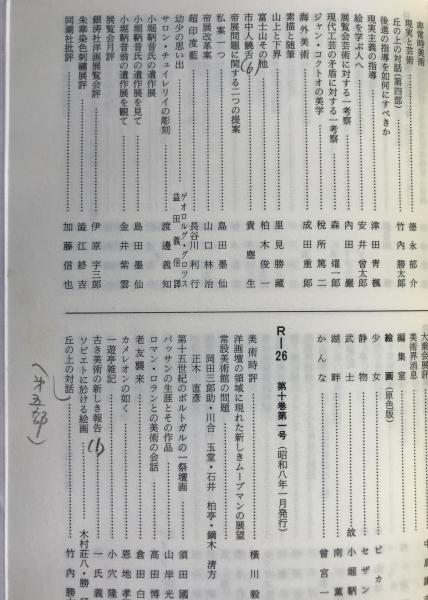 非常時美術
現実と芸術……德永郁介
丘の上の対話(第四部)……竹内勝太郎
後進の指導を如何にすべきか
現実主義の指導……津田青楓
絵を学ぶ人へ……安井曾太郎
展覧会芸術に対する一考察……内田巖
現代工芸の矛盾に対する一考察……森燿一郎
ジャン・コクトオの美学……税所篤二
海外美術……成田重郎
素描と随筆
山上と下界……里見勝藏
富士山その他……柏木俊一
市中人饒舌(6)……貴塵生
帝展問題に関する二つの提案
私案一つ……島田墨仙
帝展改革案……山口林治
超印度藍……長谷川利行
幼年の思い出……ゲオルグ・グロッス 益田義信譯
サロン・チュイレリイの彫刻……渡邊義知
小堀鞆音氏の遺作展
小堀鞆音氏の遺作展を見て……島田墨仙
小堀鞆音翁の遺作展を観て……金井紫雲
展覧会月評
銀濤社洋画展覧会評……伊原宇三郎
朱葉会色刺繡展評……澁江終吉
同潮社批評……加藤信也
大乗会展評
美術界消息
編集室
絵画(原色版)
少女……ピカ
静物……セザン
武士……故小堀鞆
湖畔……南薫
かんな……曾宮一
R—26 第十巻第一号(昭和八年一月発行)
美術時評……横川毅
洋画壇の領域に現れた新しきムーブマンの展望
常設美術館の問題
岡田三郎助・川合玉堂・石井柏亭・鏑木清方
正木直彦
第十五世紀のポルトガルの一祭壇画……須田國
パッサンの生涯とその作品……山岸光
ロマン・ロランとの美術の会話……高田博
老友襲来……倉田白
カメレオンの如く……恩地孝
一遊亭雑記……小穴隆
古き美術の新しき報告(1)……一氏義
ソビエトに於ける絵画……木村荘八・勝
丘の上の対話……竹内勝
(第五部)